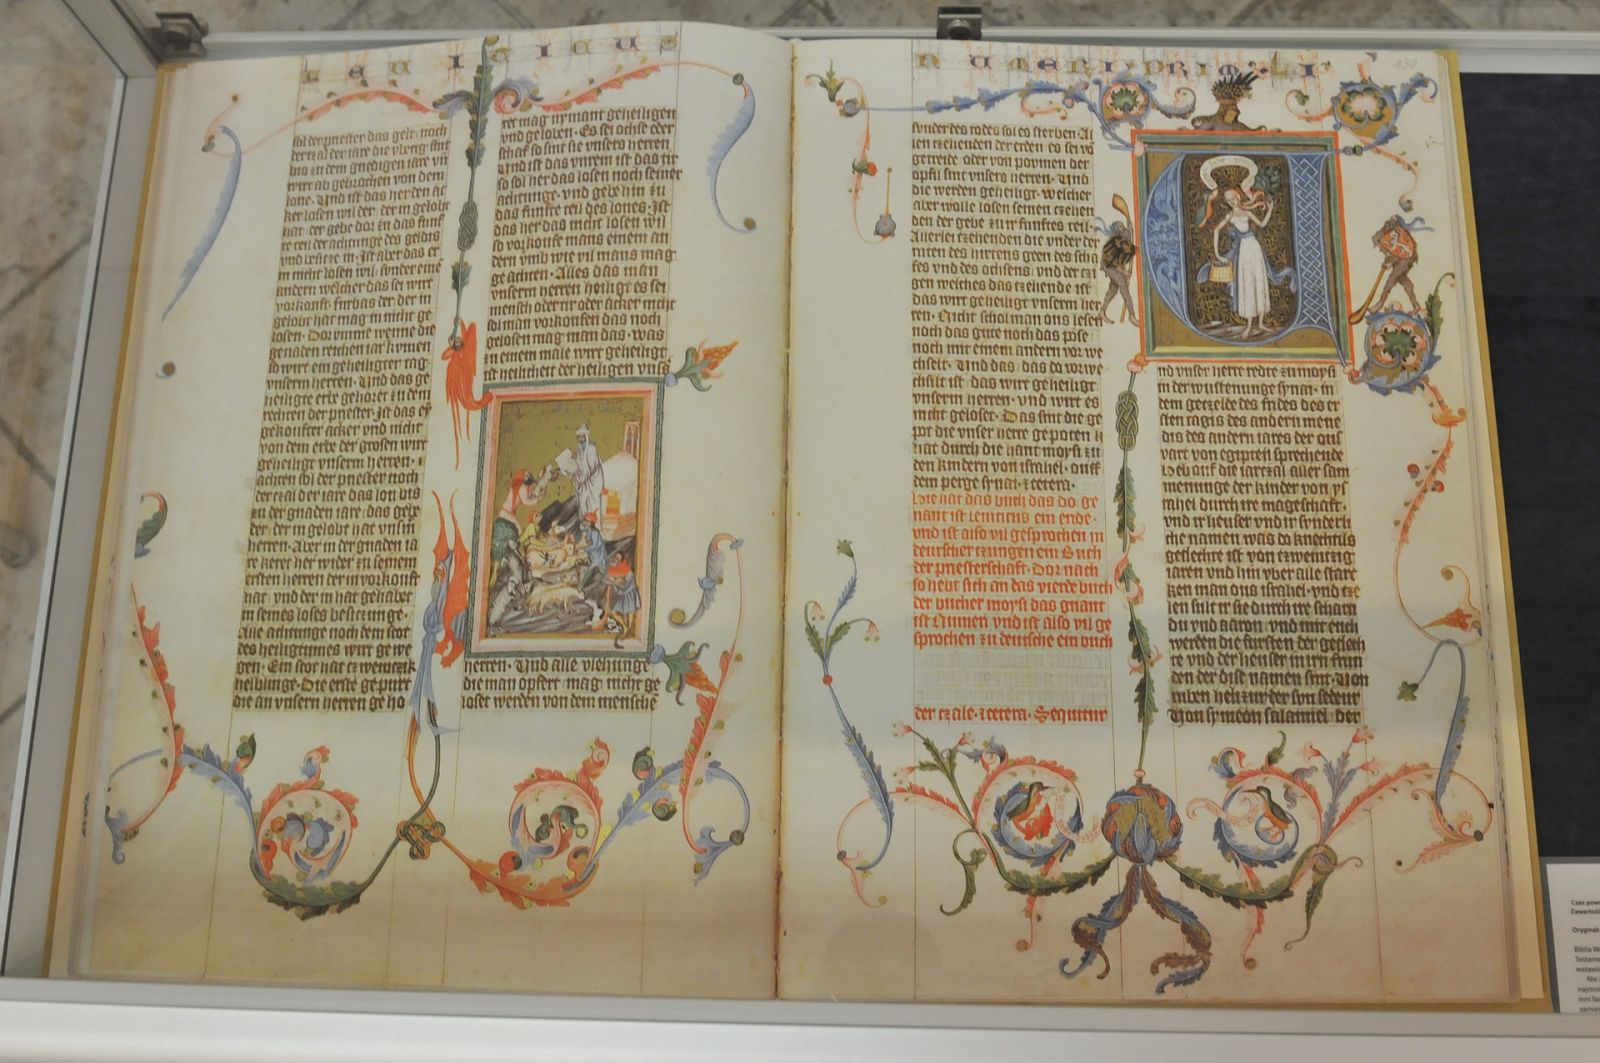 LEVITICUS
sol der priester das gelt · noch
der czal der iare die vbrig sint
bis zu dem gnedigen iare vnd
wirt ab gebrochen von dem
lone · Vnd ist das her den ac
ker losen wil der · der in gelobt
hat · der gebe dor zu das funf
te teil der achtunge des geldis
vnd besitze in · Ist aber das er
in nicht losen wil · sunder eime
andern welcher das sei wirt
vorkouft · furbas der · der in
gelobt hat mag in nicht ge
losen · Dorumme wenne die
genaden reichen iar kvmen
so wirt ein geheiligter tag
vnserm herren · Vnd das ge
heiligte erbe gehoret zu dem
rechten der priester · Ist das eyn
gekoufter acker vnd nicht
von dem erbe der grosen wirt
geheiligt vnserm herren ·
achten sol der priester noch
der czal der iare das lon bis
zu der gnaden iare · das gebe
der · der in gelobt hat vnsm
herren · Aber in der gnaden ia
re keret her wider zu seinem
ersten herren der in vorkouft
hat · vnd der in hat gehabt
in seines loses besitzunge ·
Alle achtunge noch dem scot
des heiligtumes wirt gewe
gen · Ein scot hat czwenczik
helblinge · Die erste gepurt
die an vnsern herren geho
ret mag nymant geheiligen
vnd geloben · Es sei ochse oder
schaf so sint sie vnsers herren
Vnd ist das vnrein ist das tir
so sol her das losen noch seiner
achtunge · vnd gebe hin zu
das funfte teil des lones · Ist
das her das nicht losen wil
so vorkoufe mans einem an
dern vmb wie vil mans mag
ge achten · Alles das man
vnserm herren heiligt es sei
mensch oder tir oder acker nicht
sol man vorkoufen das noch
gelosen mag man das · Was
zu einem male wirt geheiligt
ist heilicheit der heiligen vnss
herren · Vnd alle viehunge
die man opfert · mag nicht ge
loset werden von dem mensche
NUMERI · PRIM · I
130
sunder des todes sol es sterben · Al
len czehenden der erden es sei von
getreide oder von poymen der
opfil sint vnsers herren · Vnd
die werden geheiligt · welcher
aber wolle losen seinen czehen
den der gebe zu ir funftes teil ·
Allerlei czehenden die vnder der
ruten des hirtens geen des scha
fes vnd des ochsens · vnd der czi
gen welches das czehende ist
das wirt geheiligt vnserm her
ren · Nicht schol man ons lesen
noch das gute noch das pose
noch mit einem andern vor we
chselt · Vnd das · das do vorwe
chselt ist · das wirt geheiligt
vnserm herren · vnd wirt es
nicht geloset · Das sint die ge
pot die vnser herre gepoten
hat durch die hant moysi zu
den kindern von israhel · ouff
dem perge synai · zcetera ·
Hie hat das buch das do ge
nant ist leuiticus ein ende ·
vnd ist also vil gesprochen in
deutscher czungen ein Buch
der priesterschaft · Dor nach
so hebt sich an das vierde buch
der bucher moysi das gnant
ist Numeri vnd ist also vil ge
sprochen zu deutsche ein buch
der czale · zcetera · Sequitur
Und vnser herre redte zu moysi
in der wustenunge synai · in
dem geczelde des fridees des er
sten tagis des andern mene
dis des andern iares der ous
vart von egipten sprechende
Heb ouf die iarczal aller sam
menunge der kinder von ys
rahel durch ire mageschaft ·
vnd ir heuser vnd ir sunderli
che namen was do knechtlis
geslechte ist von czwenczig
iaren vnd hin vber alle stark
ken man ous israhel · vnd cze
len sult ir sie durch ire scharn
du vnd aaron · vnd mit euch
werden die fursten der geslech
te vnd der heuser in irn frun
den der dise namen sint · Von
ruben helizur der son sedeur
Von symeon salamiel · der
Czas pow
Zawartość
Oryginał
Biblia W
Testame
wstawi
Nie
najmni
inni fa
zamie